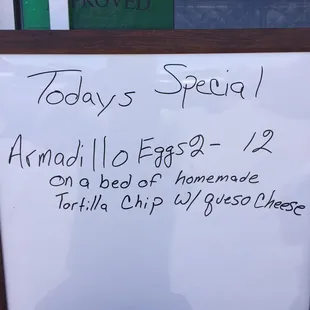 PROVED
Todays Special
Armadillo Eggs 2- 12
on a bed of homemade
Tortilla Chip w/ queso Cheese